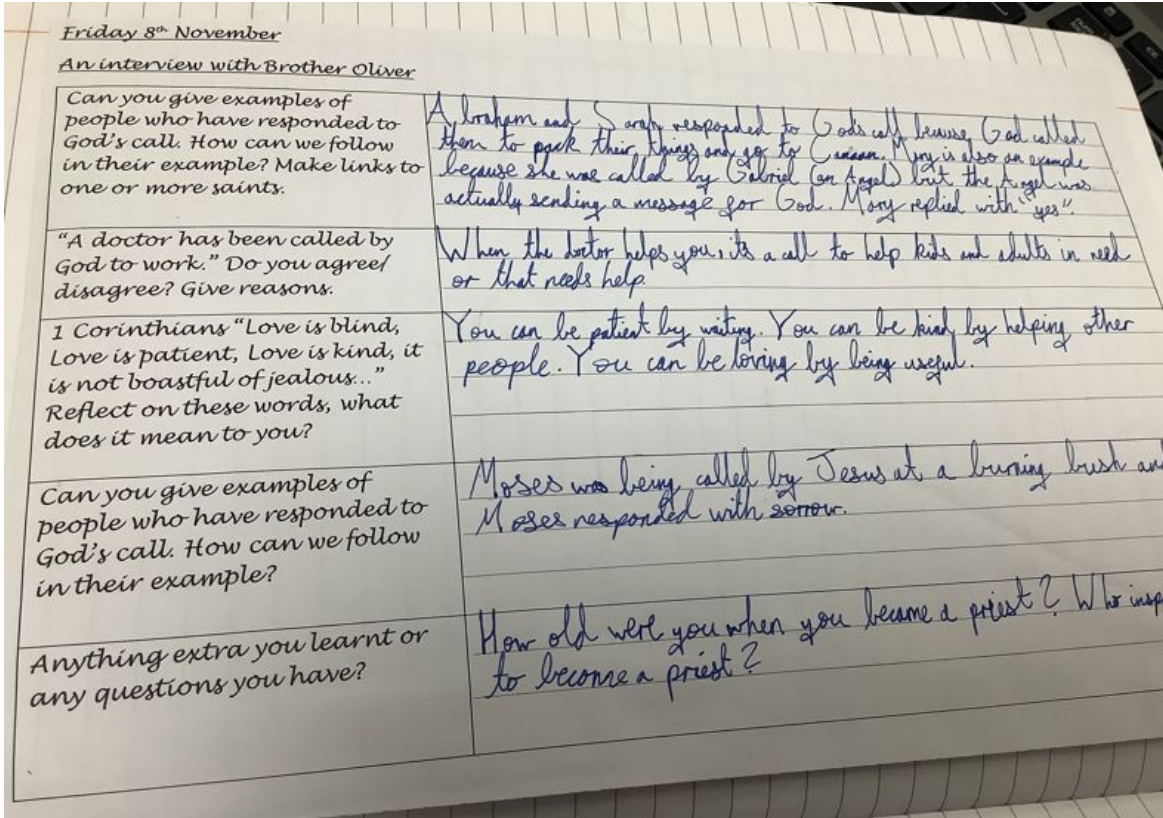 Friday 8th November
An interview with Brother Oliver
Can you give examples of
people who have responded to
God's call. How can we follow
in their example? Make links to
one or more saints.
Abraham and Sarah responded to Gods call because God called
them to pack their things and go to Canaan. Mary is also an example
because she was called by Gabriel (an Angel) but the Angel was
actually sending a message for God. Mary replied with "yes".
"A doctor has been called by
God to work." Do you agree/
disagree? Give reasons.
When the doctor helps you, its a call to help kids and adults in need
or that needs help.
1 Corinthians "Love is blind,
Love is patient, Love is kind, it
is not boastful of jealous..."
Reflect on these words, what
does it mean to you?
You can be patient by waiting. You can be kind by helping other
people. You can be loving by being useful.
Can you give examples of
people who have responded to
God's call. How can we follow
in their example?
Moses was being called by Jesus at a burning bush an
Moses responded with sorrow.
Anything extra you learnt or
any questions you have?
How old were you when you became a priest? Who insp
to become a priest?